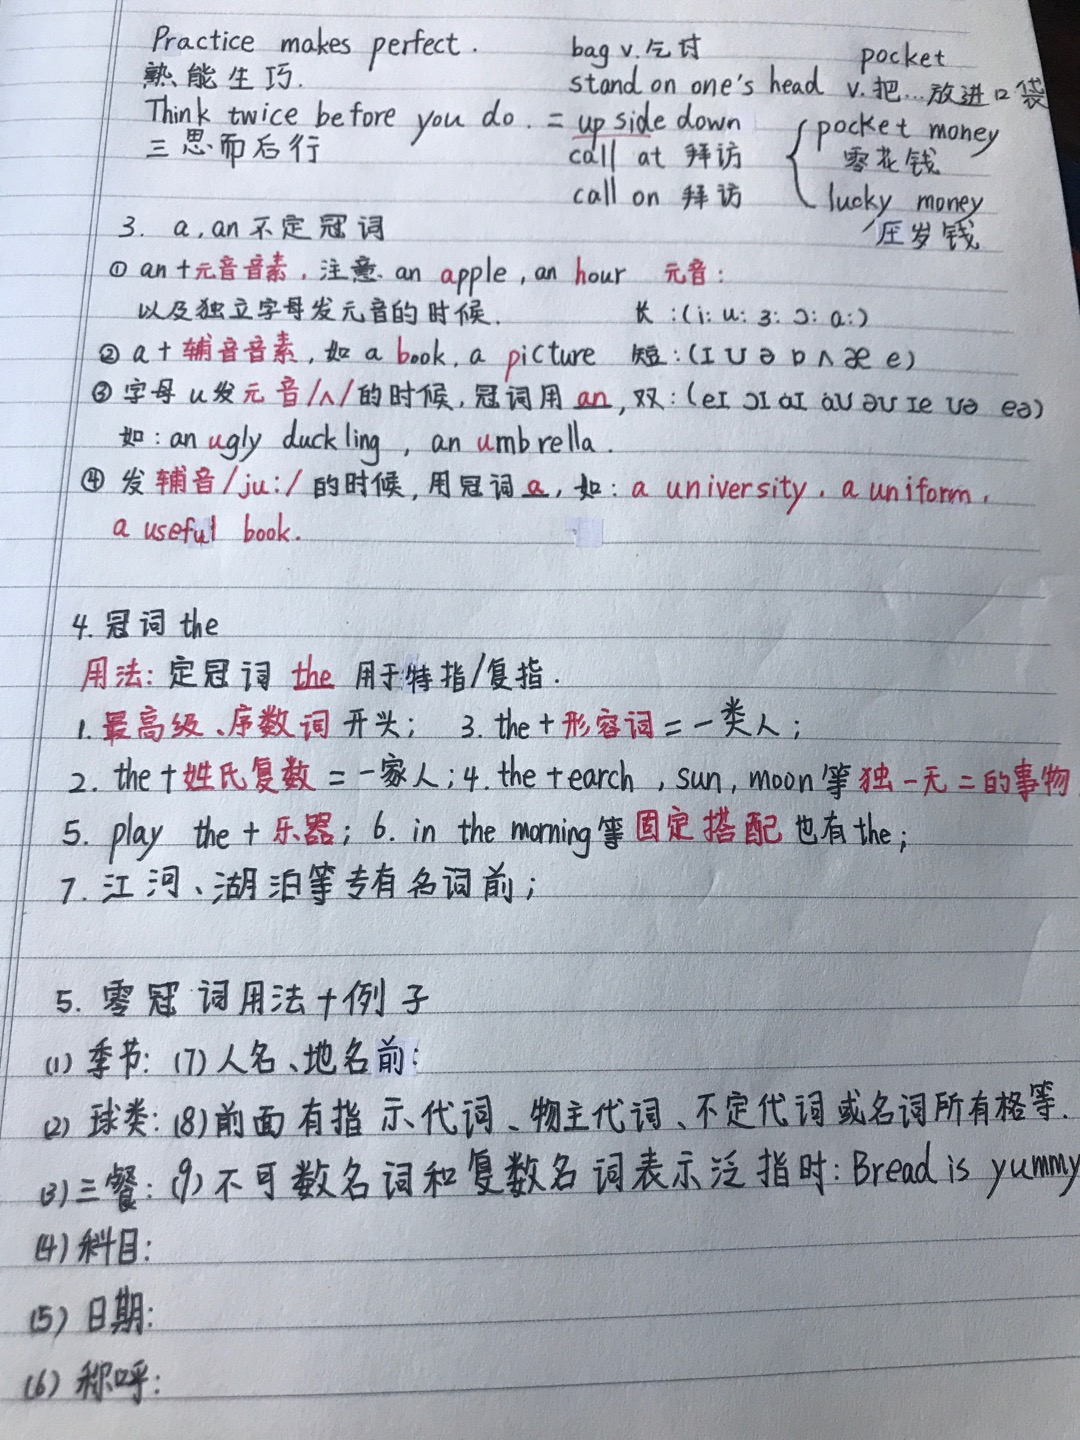 Practice makes perfect.
熟能生巧.
Think twice before you do.
三思而后行
bag v.乞讨
stand on one's head
= up side down
call at 拜访
call on 拜访
pocket
v.把...放进口袋
pocket money
零花钱
lucky money
压岁钱
3. a,an不定冠词
① an+元音音素,注意.an apple,an hour 元音:
以及独立字母发元音的时候. 长:(i: u: ɜ: ɔ: ɑ:)
② a+辅音音素,如a book,a picture 短:(ɪ ʊ ə ɒ ʌ æ e)
③ 字母u发元音/ʌ/的时候,冠词用an, 双:(eɪ ɔɪ aɪ aʊ əʊ ɪe ʊə eə)
如:an ugly duckling, an umbrella.
④ 发辅音/ju:/的时候,用冠词a,如:a university, a uniform,
a useful book.
4.冠词the
用法:定冠词 the 用于特指/复指.
1.最高级、序数词开头; 3. the+形容词=一类人;
2. the+姓氏复数=一家人;4. the+earch,sun,moon等独一无二的事物
5. play the+乐器;6. in the morning等固定搭配也有the;
7.江河、湖泊等专有名词前;
5. 零冠词用法+例子
(1)季节:(7)人名、地名前:
(2)球类:(8)前面有指示代词、物主代词、不定代词或名词所有格等.
(3)三餐:(9)不可数名词和复数名词表示泛指时:Bread is yummy
(4)科目:
(5)日期:
(6)称呼: